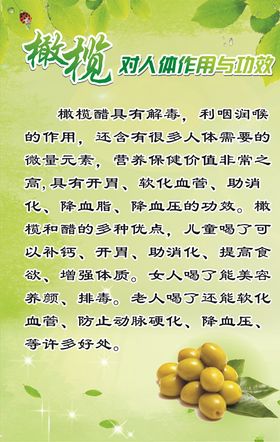 橄榄对人体作用与功效
橄榄醋具有解毒，利咽润喉
的作用，还含有很多人体需要的
微量元素，营养保健价值非常之
高,具有开胃、软化血管、助消
化、降血脂、降血压的功效。橄
榄和醋的多种优点，儿童喝了可
以补钙、开胃、助消化、提高食
欲、增强体质。女人喝了能美容
养颜、排毒。老人喝了还能软化
血管、防止动脉硬化、降血压、
等许多好处。